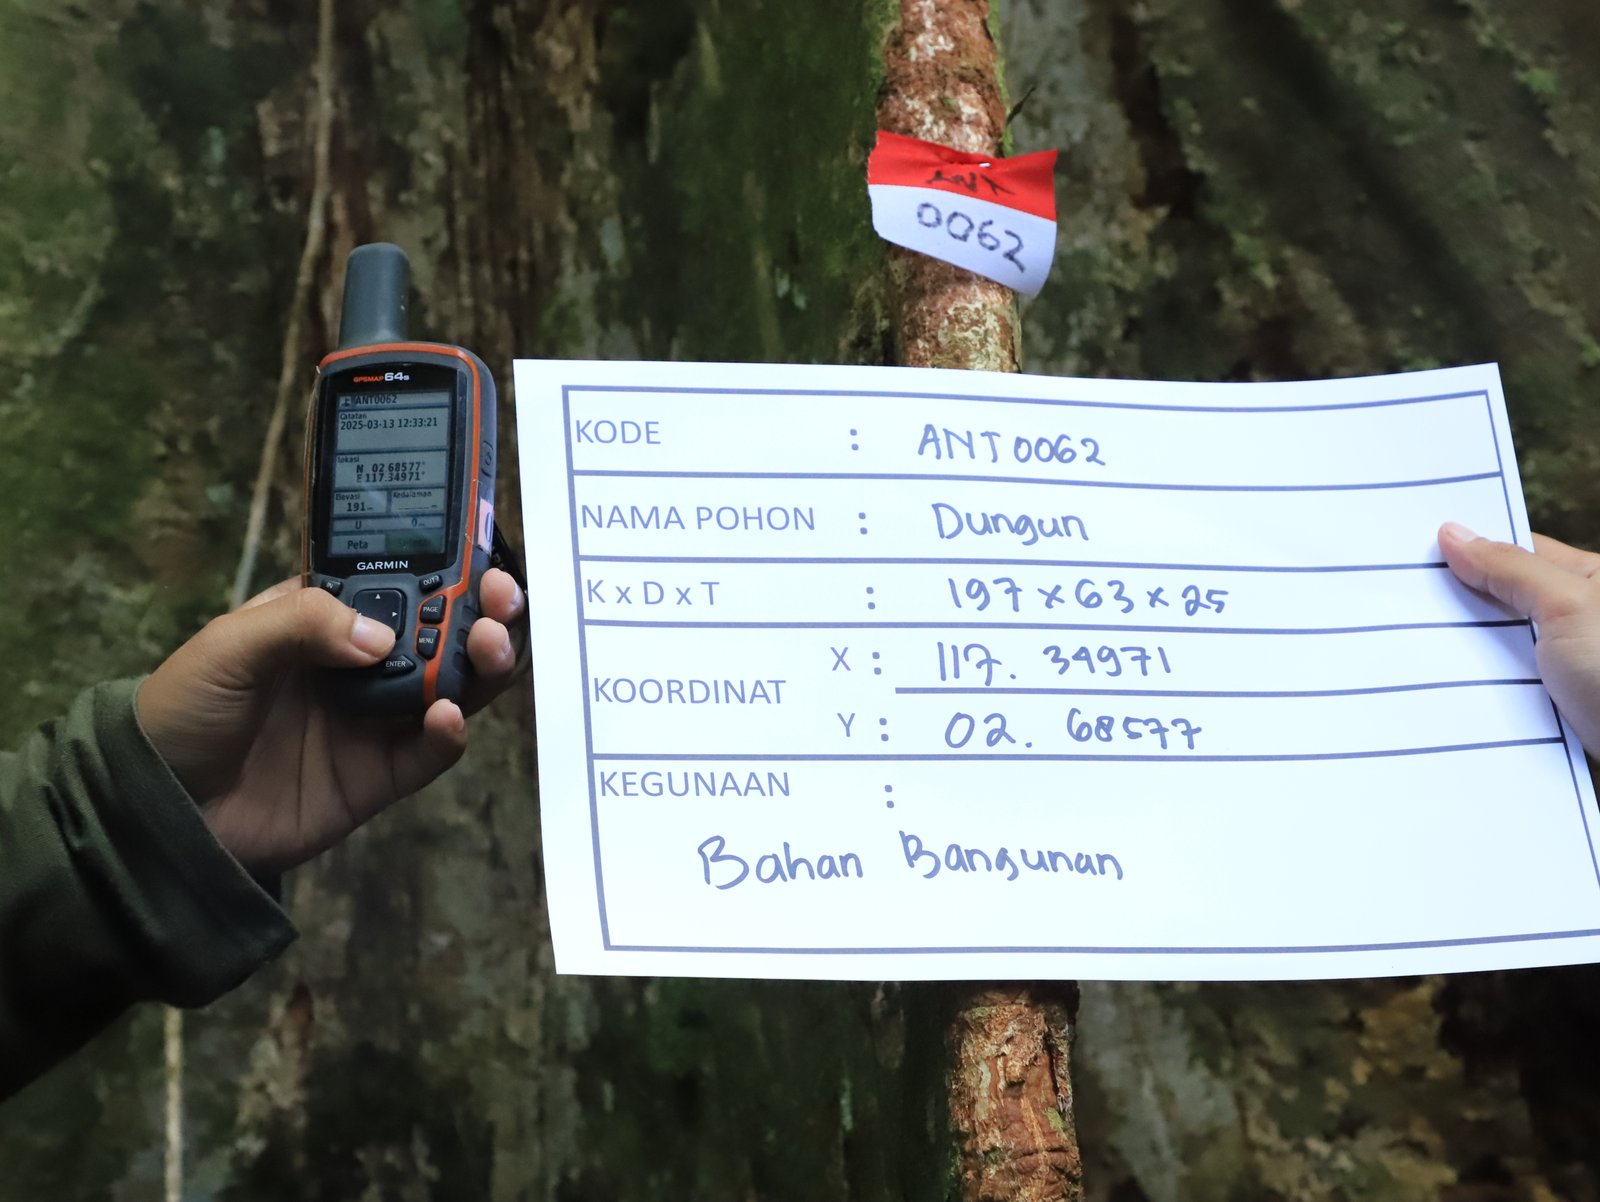 ANT
0062
GPSMAP 64s
ANT0062
Catatan
2025-03-13 12:33:21
lokasi
N 02.68577°
E117.34971°
Elevasi
Kedalaman
191m
U
0m
Peta
GARMIN
IN
OUT
PAGE
MENU
ENTER
KODE : ANT0062
NAMA POHON : Dungun
K x D x T : 197 x 63 x 25
KOORDINAT X : 117. 34971
Y : 02. 68577
KEGUNAAN :
Bahan Bangunan